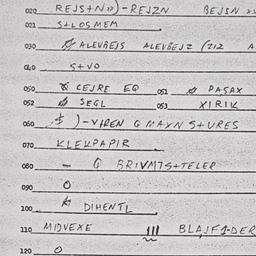 020 REJS+N»)-REJZN BEJSN
021 S+LOSMEM
030 ALEVBEJS ALEVBEJZ (212 A
040 S+VO
050 CEJRE EQ 051 PASAX
052 SEGL 053 XIRIK
060 )-VIREN G MAXN S+URES
070 KLEKPAPIR
080 - G BRIVMTS+TELER
090 O
100 DIHENTL
110 MIDVEXE BLAJF
120 O